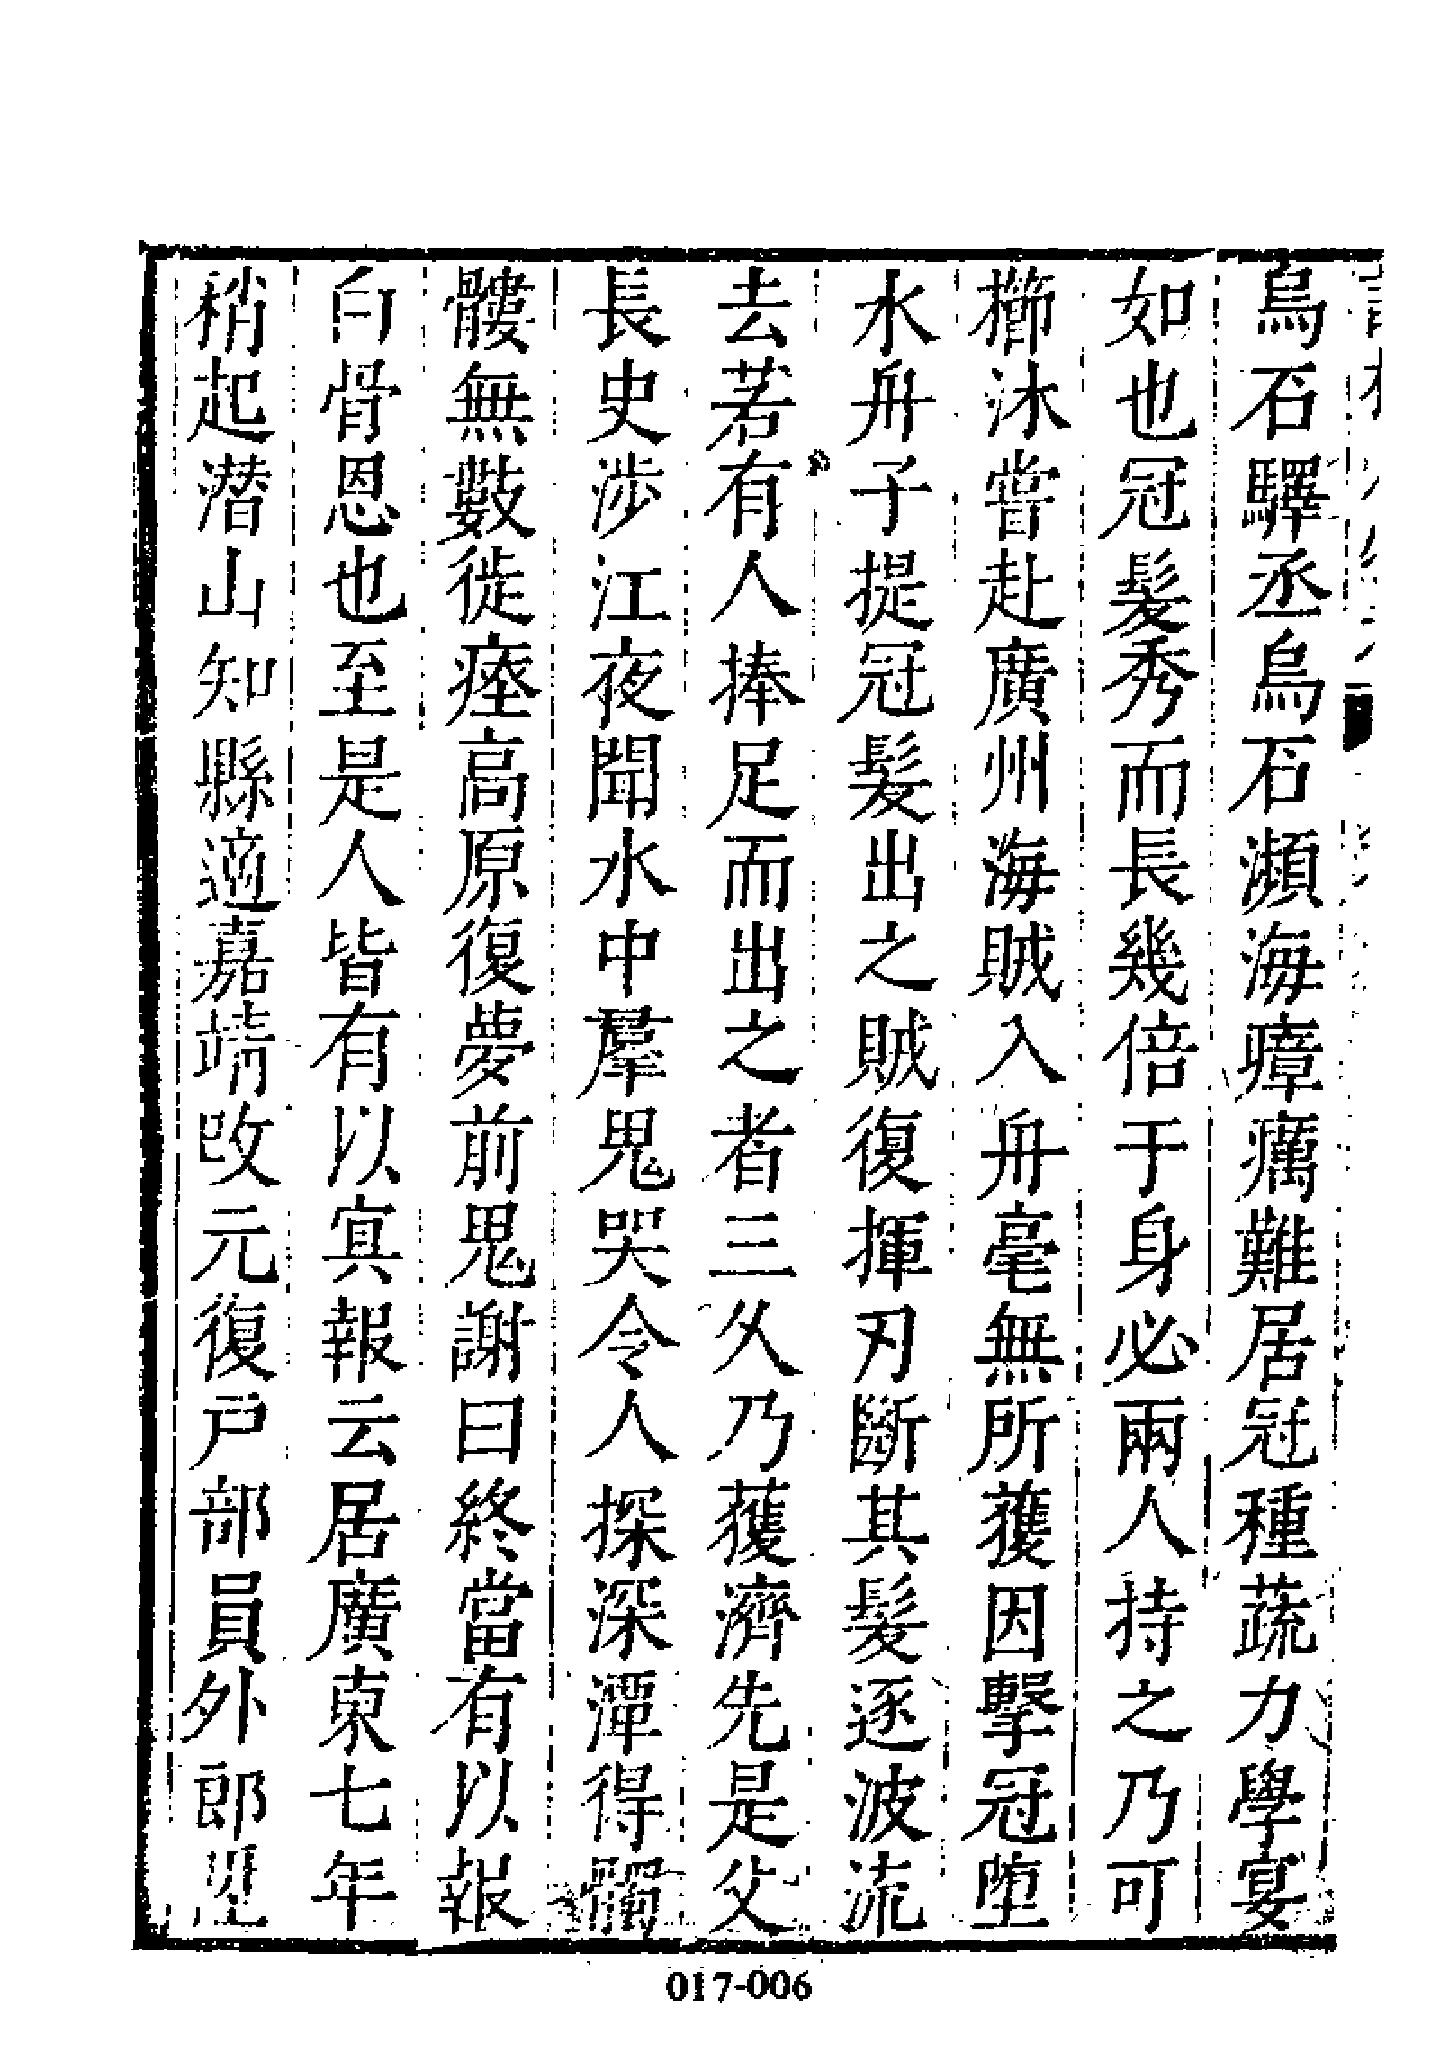 烏石驛丞烏石瀕海瘴癘難居冠種蔬力學宴
如也冠髮秀而長幾倍于身必兩人持之乃可
擳沐嘗赴廣州海賊入舟毫無所獲因擊冠堕
水舟子提冠髮出之賊復揮刃斷其髮逐波流
去若有人捧足而出之者三久乃獲濟先是父
長史涉江夜聞水中羣鬼哭令人探深潭得髑
髏無數徙瘞高原復夢前鬼謝曰終當有以報
白骨恩也至是人皆有以冥報云居廣東七年
稍起潜山知縣適嘉靖改元復户部員外郎歷
017-006